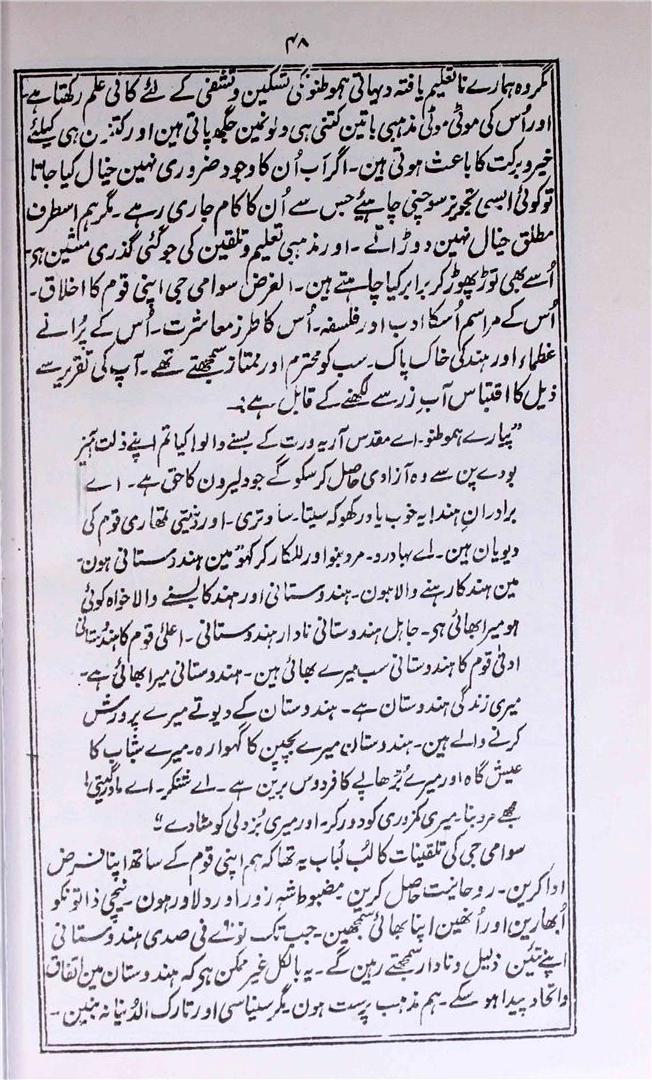 ۴۸
اگر وہ ہمارے ناتعلیم یافتہ دیہاتی ہموطنونکی تسکین و تشفی کے لئے کافی علم رکھتا ہے۔
اور اُس کی موٹی موٹی مذہبی باتین کتنی ہی دلونمین جگھ پاتی ہین اور کتنون ہی کیلئے
خیر و برکت کا باعث ہوتی ہین۔ اگر اب اُن کا وجود ضروری نہین خیال کیا جاتا
تو کوئی ایسی تجویز سوچنی چاہیئے جس سے اُن کا کام جاری رہے۔ مگر ہم اسطرف
مطلق خیال نہین دوڑاتے۔ اور مذہبی تعلیم و تلقین کی جو گئی گذری مشین ہی۔
اُسے بھی توڑ پھوڑ کر برابر کیا چاہتے ہین۔ الغرض سوامی جی اپنی قوم کا اخلاق۔
اُس کے مراسم اُسکا ادب اور فلسفہ۔ اُس کا طرز معاشرت۔ اُس کے پُرانے
عظماء اور ہند کی خاک پاک۔ سب کو محترم اور ممتاز سمجھتے تھے۔ آپ کی تقریر سے
ذیل کا اقتباس آبِ زر سے لکھنے کے قابل ہے:۔
"پیارے ہموطنو۔ اے مقدس آریہ ورت کے بسنے والو! کیا تم اپنے ذلت آمیز
بودے پن سے وہ آزادی حاصل کر سکو گے جو دلیرون کا حق ہے۔ اے
برادرانِ ہند! یہ خوب یاد رکھو کہ سیتا۔ ساوتری۔ اور دمینتی تمھاری قوم کی
دیویان ہین۔ اے بہادرو۔ مرد بنو اور للکار کر کہو "مین ہندوستانی ہون۔
مین ہند کا رہنے والا ہون۔ ہندوستانی اور ہند کا بسنے والا خواہ کوئی
ہو میرا بھائی ہی۔ جاہل ہندوستانی نادار ہندوستانی۔ اعلیٰ قوم کا ہندوستانی
ادنیٰ قوم کا ہندوستانی سب میرے بھائی ہین۔ ہندوستانی میرا بھائی ہے۔
میری زندگی ہندوستان ہے۔ ہندوستان کے دیوتے میرے پرورش
کرنے والے ہین۔ ہندوستان میرے بچپن کا گہوارہ۔ میرے شباب کا
عیش گاہ اور میرے بُڑھاپے کا فردوس برین ہے۔ اے شنکر۔ اے مادر گیتی!
مجھے مرد بنا۔ میری کمزوری کو دور کر۔ اور میری بُزدلی کو مٹا دے۔"
سوامی جی کی تلقینات کا لبُ لُباب یہ تھا کہ ہم اپنی قوم کے ساتھ اپنا فرض
ادا کرین۔ روحانیت حاصل کرین مضبوط شہ زور اور دلاور ہون۔ نیچی ذاتونکو
اُبھارین اور اُنھین اپنا بھائی سمجھین۔ جب تک نوّے فی صدی ہندوستانی
اپنے تئین ذلیل و نادار سمجھتے رہین گے۔ یہ بالکل غیر ممکن ہی کہ ہندوستان مین اتفاق
واتحاد پیدا ہو سکے۔ ہم مذہب پرست ہون مگر سنیاسی اور تارک الدُنیا نہ بنین۔